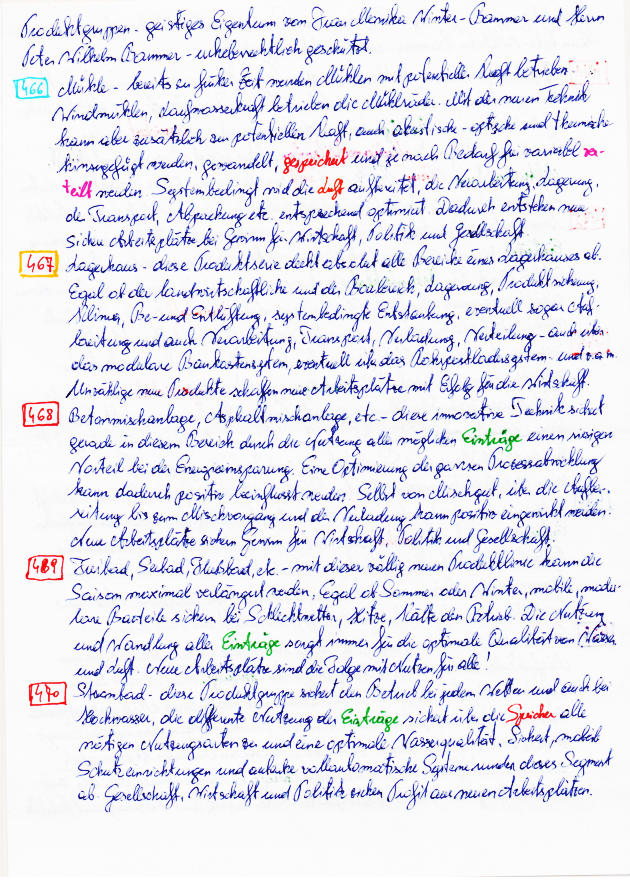 Produktgruppen - geistiges Eigentum von Frau Monika Winter-Bammer und Herrn
Peter Wilhelm Bammer - urheberrechtlich geschützt.
466 Mühle - bereits zu früher Zeit wurden Mühlen mit potentieller Kraft betrieben.
Windmühlen, Laufwasserkraft betrieben die Mühlräder. Mit der neuen Technik
kann aber zusätzlich zur potentiellen Kraft, auch akustische - optische und thermische
hinzugefügt werden, gewandelt, gespeichert und je nach Bedarf für variabel ver-
teilt werden. Systembedingt wird die Luft aufbereitet, die Verarbeitung, Lagerung,
der Transport, Abpackung etc. entsprechend optimiert. Dadurch entstehen neue
sichere Arbeitsplätze bei Gewinn für Wirtschaft, Politik und Gesellschaft.
467 Lagerhaus - diese Produktserie deckt absolut alle Bereiche eines Lagerhauses ab.
Egal ob der landwirtschaftliche und der Baubereich, Lagerung, Produkt
Klima, Be- und Entlüftung, systembedingte Entstaubung, eventuell sogar Auf-
bereitung und auch Verarbeitung, Transport, Verladung, Verteilung - auch über
das modulare Baukastensystem, eventuell über das Rohrpostladesystem - und v.a.m.
Unzählige neue Produkte schaffen neue Arbeitsplätze mit Erfolg für die Wirtschaft.
468 Betonmischanlage, Asphaltmischanlage, etc - diese innovative Technik sichert
gerade in diesem Bereich durch die Nutzung aller möglichen Einträge einen riesigen
Vorteil bei der Energieeinsparung. Eine Optimierung der ganzen Prozessabwicklung
kann dadurch positiv beeinflusst werden. Selbst vom Mischgut, über die Aufbe-
reitung bis zum Mischvorgang und die Verladung kann positiv eingewirkt werden.
Neue Arbeitsplätze sichern Gewinn für Wirtschaft, Politik und Gesellschaft.
469 Freibad, Seebad, Flussbad, etc. - mit dieser völlig neuen Produktlinie kann die
Saison maximal verlängert werden, Egal ob Sommer oder Winter, mobile, modu-
lare Bauteile sichern bei Schlechtwetter, Hitze, Kälte den Betrieb. Die Nutzung
und Wandlung aller Einträge sorgt immer für die optimale Qualität von Wasser
und Luft. Neue Arbeitsplätze sind die Folge mit Nutzen für alle!
470 Strombad - diese Produktgruppe sichert den Betrieb bei jedem Wetter und auch bei
Hochwasser, die differente Nutzung der Einträge sichert über die Speicher alle
nötigen Nutzungsarten zu und eine optimale Wasserqualität. Sichert, mobile
Schutzeinrichtungen und autarke vollautomatische Systeme runden dieses Segment
ab. Gesellschaft, Wirtschaft und Politik ziehen Profit aus neuen Arbeitsplätzen.